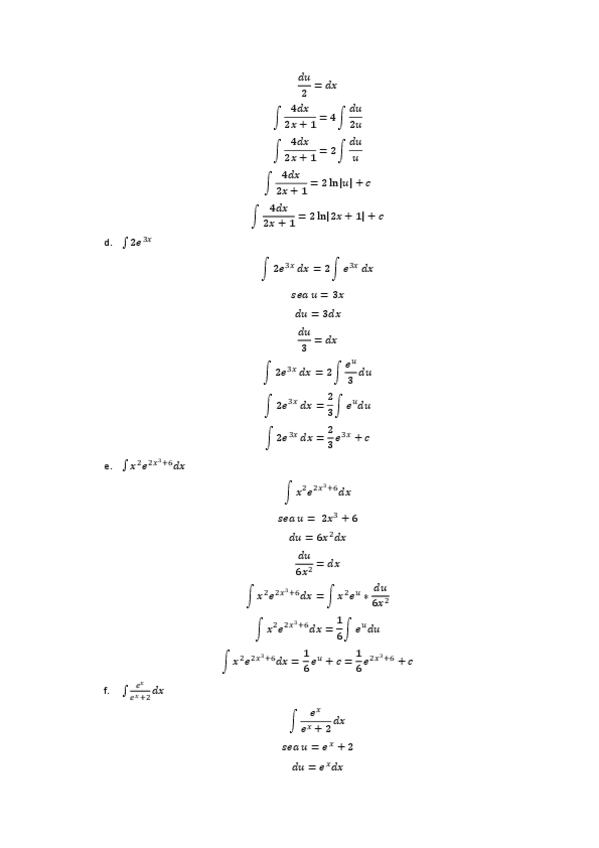 du/2 = dx
∫ 4dx/(2x + 1) = 4 ∫ du/2u
∫ 4dx/(2x + 1) = 2 ∫ du/u
∫ 4dx/(2x + 1) = 2 ln|u| + c
∫ 4dx/(2x + 1) = 2 ln|2x + 1| + c
d. ∫ 2e^{3x}
∫ 2e^{3x} dx = 2 ∫ e^{3x} dx
sea u = 3x
du = 3dx
du/3 = dx
∫ 2e^{3x} dx = 2 ∫ e^u/3 du
∫ 2e^{3x} dx = 2/3 ∫ e^u du
∫ 2e^{3x} dx = 2/3 e^{3x} + c
e. ∫ x²e^{2x³+6}dx
∫ x²e^{2x³+6}dx
sea u = 2x³ + 6
du = 6x²dx
du/6x² = dx
∫ x²e^{2x³+6}dx = ∫ x²e^u * du/6x²
∫ x²e^{2x³+6}dx = 1/6 ∫ e^u du
∫ x²e^{2x³+6}dx = 1/6 e^u + c = 1/6 e^{2x³+6} + c
f. ∫ e^x/(e^x+2) dx
∫ e^x/(e^x + 2) dx
sea u = e^x + 2
du = e^x dx